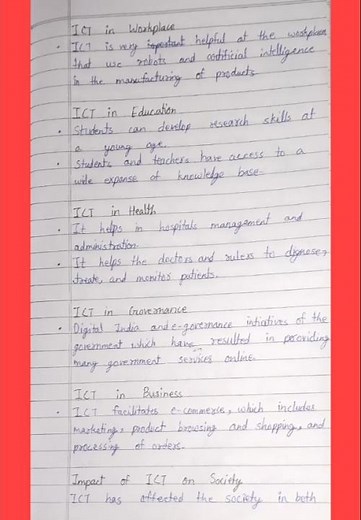 ICT in Workplace
• ICT is very helpful at the workplace
that we robots and artificial intelligence
in the manufacturing of products.
ICT in Education
• Students can develop research skills at
a young age.
• Students and teachers have access to a
wide expanse of knowledge base.
ICT in Health
• It helps in hospitals management and
administration.
• It helps the doctors and to
treat, and monitor patients.
ICT in Governance
• Digital India and e-governance of the
government which have resulted in providing
many government services online.
ICT in Business
• ICT facilitates e-commerce, which includes
marketing, product browsing and shopping, and
processing of orders.
Impact of ICT on Society
ICT has affected the society in both